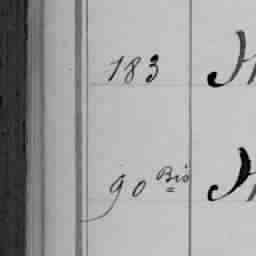 183
90 Bis